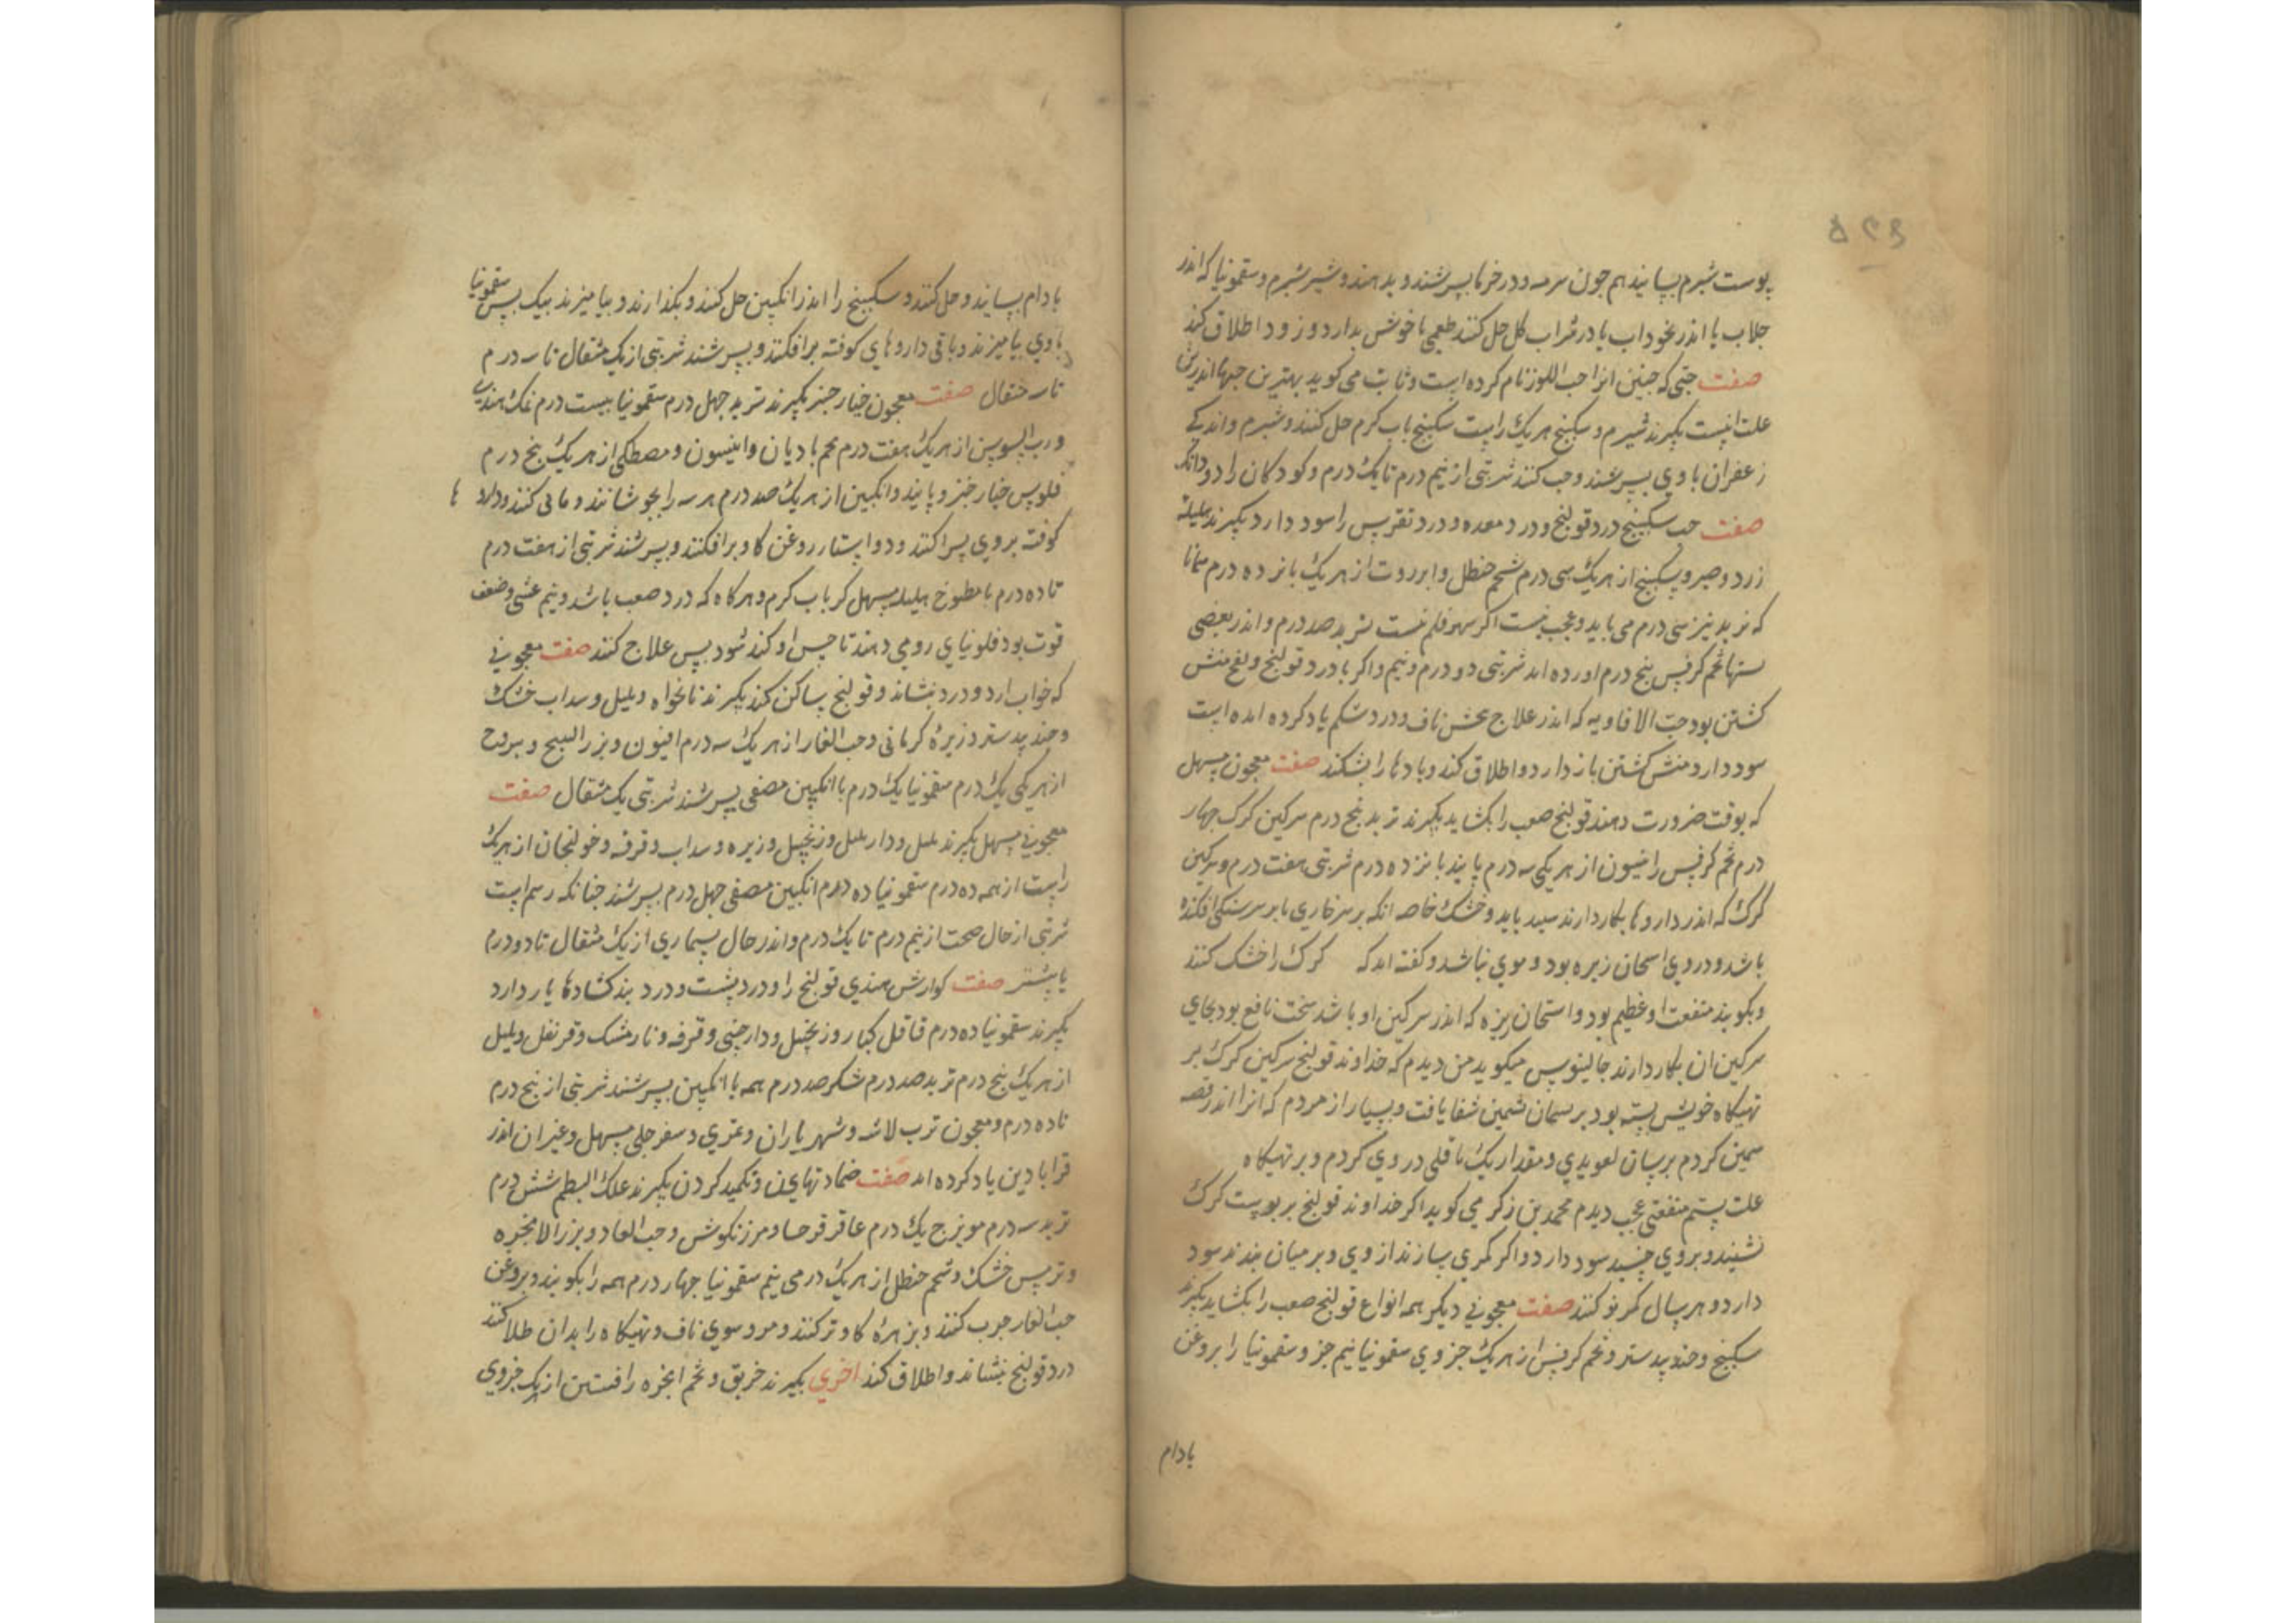 ۵۲۹
پوست شبرم بسایند هم چون سرمه و در خرما بسرشند و بدهند و شیر شبرم و سقمونیا که اندر
جلاب یا اندر نخوداب یا در شراب گل حل کنند طعمی ناخوش ندارد و زود اطلاق کند
صفت حبی که حنین انرا حب اللوز نام کرده است و ثابت می کوید بهترین حبها اندرین
علت اینست بکیرند شبرم و سکبینج هر یک راست سکبینج باب کرم حل کنند و شبرم و اندکی
زعفران با وی بسرشند و حب کنند شربتی از نیم درم تا یک درم و کودکان را دو دانک
صفت حب سکبینج درد قولنج و درد معده و درد نقرس را سود دارد بکیرند هلیله
زرد و صبر و سکبینج از هر یک سی درم شحم حنظل و انزروت از هر یک پانزده درم همانا
که تربد نیز سی درم می باید و عجب نیست اکر سهو قلم نیست تربد صد درم و اندر بعضی
نسخها تخم کرفس پنج درم اورده اند شربتی دو درم و نیم و اکر با درد قولنج و تبع منش
کشتن بود حب الافاویه که اندر علاج ناف و درد شکم یاد کرده امده است
سود دارد منش کشتن باز دارد و اطلاق کند و بادها را بشکند صفت معجون مسهل
که بوقت ضرورت دهند قولنج صعب را بکشاید بکیرند تربد پنج درم سرکین کرک چهار
درم تخم کرفس رانیسون از هر یکی سه درم پانید پانزده درم شربتی هفت درم و سرکین
کرک که اندر داروها بکار دارند سپید باید و خشک خاصه انکه بر سر خاری یا بر سر سنکی افکنده
باشد و در وی استخان ریزه بود و موی نباشد و کفته اند که کرک را خشک کنند
و بکوبند منفعت او عظیم بود و استخان ریزه که اندر سرکین او باشد سخت نافع بود بجای
سرکین ان بکار دارند جالینوس میکوید من دیدم که خداوند قولنج سرکین کرک بر
تهیکاه خویش بسته بود بر یسمان پشمین شفا یافت و بسیار از مردم که انرا اندر قصه
سمین کردم برسان تعویذی و مقدار یک باقلی در وی کردم و بر تهیکاه
علت بستم منفعتی عجب دیدم محمد بن زکر می کوید اکر خداوند قولنج بر پوست کرک
نشیند و بر وی خسبد سود دارد و اکر کمری سازند از وی و بر میان بندند سود
دارد و هر سال کمر نو کنند صفت معجونی دیکر همه انواع قولنج صعب را بکشاید بکیرند
سکبینج و جندبیدستر و تخم کرفس از هر یک جزوی سقمونیا نیم جز و سقمونیا را بروغن
بادام
بادام بسایند و حل کنند و سکبینج را اندر انکبین حل کنند و بکذارند و بیامیزند بیک پس سقمونیا
با وی بیامیزند و باقی داروهای کوفته برافکنند و بسرشند شربتی از یک مثقال تا سه درم
تا سه مثقال صفت معجون خیارچنبر بکیرند تربد چهل درم سقمونیا بیست درم نمک هندی
و رب السوس از هر یک هفت درم تخم بادیان و انیسون و مصطکی از هر یک پنج درم
فلوس خیارچنبر و پانید و انکبین از هر یک صد درم هر سه را بجوشانند و صافی کنند و دارو ها
کوفته بر وی پراکنند و دو استار روغن کاو برافکنند و بسرشند شربتی از هفت درم
تا ده درم با مطبوخ هلیله مسهل کر باب کرم و هرکاه که درد صعب باشد و بیم غشی و ضعف
قوت بود فلونیای رومی دهند تا حس او کند شود پس علاج کنند صفت معجونی
که خواب ارد و درد بنشاند و قولنج ساکن کند بکیرند نانخواه و پلپل و سداب خشک
و جندبیدستر و زیره کرمانی و حب الغار از هر یک سه درم افیون و بزر البنج و یبروح
از هر یکی یک درم سقمونیا یک درم با انکبین مصفی بسرشند شربتی یک مثقال صفت
معجونی مسهل بکیرند پلپل و دار پلپل و زنجبیل و زیره و سداب و قرفه و خولنجان از هر یک
راست از همه ده درم سقمونیا ده درم انکبین مصفی چهل درم بسرشند چنانکه رسم است
شربتی از حال صحت از نیم درم تا یک درم و اندر حال بیماری از یک مثقال تا دو درم
یا بیشتر صفت کوارش هندی قولنج را و درد پشت و درد بند کشادها یار دارد
بکیرند سقمونیا ده درم قاقل کبار و زنجبیل و دارچینی و قرفه و نارمشک و قرنفل و پلپل
از هر یک پنج درم تربد صد درم شکر صد درم همه با انکبین بسرشند شربتی از پنج درم
تا ده درم و معجون ترب لانه و شهریاران و تمری و سفرجلی مسهل و غیر ان اندر
قرابادین یاد کرده اند صفت ضماد نهادن و تکمید کردن بکیرند علک البطم شش درم
تربد سه درم مویزج یک درم عاقرقرحا و مرزنکوش و حب الغار و بزر الانجره
و ترمس خشک و شحم حنظل از هر یک درمی نیم سقمونیا چهار درم همه را بکوبند و بروغن
حب الغار چرب کنند و بزهره کاو تر کنند و مر و سوی ناف و تهیکاه را بدان طلا کنند
درد قولنج بنشاند و اطلاق کند اخری بکیرند خربق و تخم انجره و افسنتین از هر یک جزوی